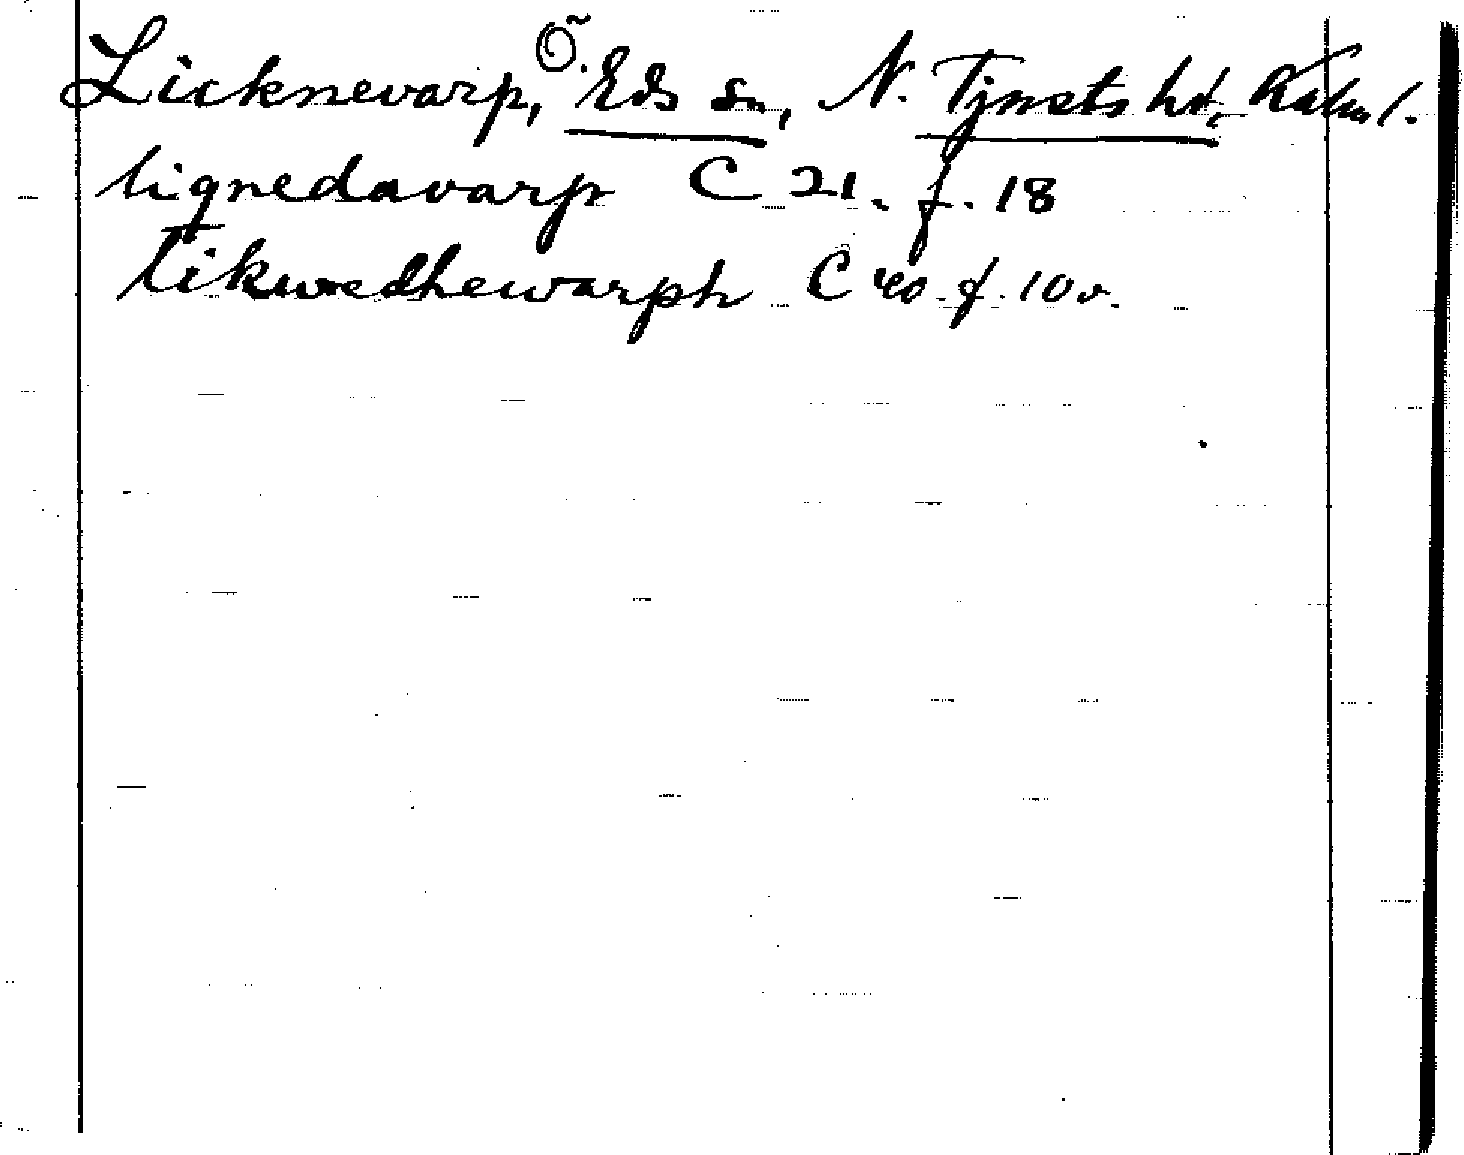 Licknevarp, Ö. Eds sn, N. Tjusts hd, Kalm l.
lignedavarp C 21. f. 18
likwedhewarph C 40 f. 10 v.